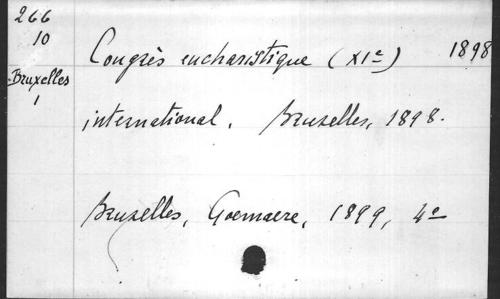 266
10
Bruxelles
1
Congrès eucharistique (XIe) 1898
international. Bruxelles, 1898.
Bruxelles, Goemaere, 1899, 4o